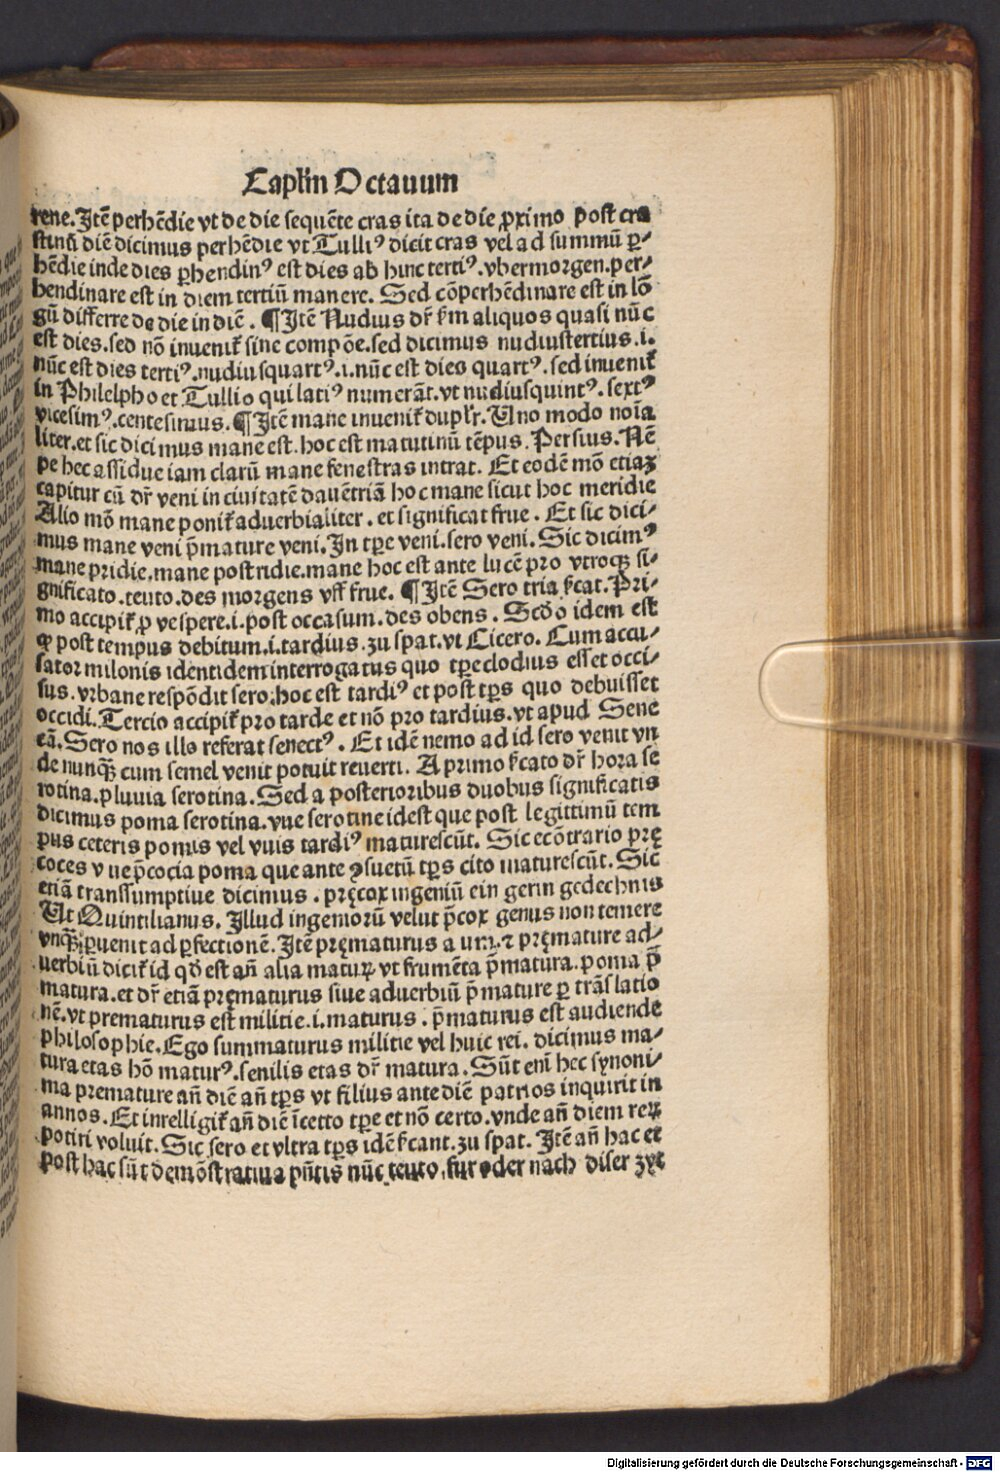 Caplm̄ Octauum
rene. Itē perhēdie vt de die sequēte cras ita de die ꝓximo post cra
stinū diē dicimus perhēdie vt Tulliꝰ dicit cras vel ad summū ꝑ-
hēdie inde dies ꝑhendinꝰ est dies ab hinc tertiꝰ. vbermorgen. per-
hendinare est in diem tertiū manere. Sed cōperhēdinare est in lō
gū differre de die in diē. ¶ Itē Nudius dr̄ ẜm aliquos quasi nūc
est dies. sed nō inuenit̄ sine compōe. sed dicimus nudiustertius. i.
nūc est dies tertiꝰ. nudiusquartꝰ. i. nūc est dies quartꝰ. sed inuenit̄
in Philelpho et Tullio qui latiꝰ numerāt. vt nudiusquintꝰ. sextꝰ
vicesimꝰ. centesimus. ¶ Itē mane inuenit̄ dupl̄r. Uno modo noīa
liter. et sic dicimus mane est. hoc est matutinū tēpus. Persius. Nē
pe hec assidue iam clarū mane fenestras intrat. Et eodē mō etiaꝫ
capitur cū dr̄ veni in ciuitatē dauētriā hoc mane sicut hoc meridie
Alio mō mane ponit̄ aduerbialiter. et significat frue. Et sic dici-
mus mane veni p̄mature veni. In tꝑe veni. sero veni. Sic dicimꝰ
mane pridie. mane postridie. mane hoc est ante lucē pro vtroqꝫ si-
gnificato. teuto. des morgens vff frue. ¶ Itē Sero tria ẜcat. Pri-
mo accipit̄ ꝓ vespere. i. post occasum. des obens. Scd̄o idem est
ꝙ post tempus debitum. i. tardius. zu spat. vt Cicero. Cum accu-
sator milonis identidem interrogatus quo tꝑe clodius esset occi-
sus. vrbane respōdit sero: hoc est tardiꝰ et post tꝑs quo debuisset
occidi. Tercio accipit̄ pro tarde et nō pro tardius. vt apud Sene
cā. Sero nos illo referat senectꝰ. Et idē nemo ad id sero venit vn
de nunqꝫ cum semel venit potuit reuerti. A primo ẜcato dr̄ hora se
rotina. pluuia serotina. Sed a posterioribus duobus significatis
dicimus poma serotina. vue serotine idest que post legittimū tem
pus ceteris pomis vel vuis tardiꝰ maturescūt. Sic ecōtrario prę
coces vue p̄cocia poma que ante ꝯsuetū tꝑs cito maturescūt. Sic
etiā transsumptiue dicimus. pręcox ingeniū ein gerin gedechnis
Ut Quintilianus. Illud ingeniorū velut p̄cox genus non temere
vnqꝫ ꝑuenit ad ꝑfectionē. Itē pręmaturus a um. ⁊ pręmature ad-
uerbiū dicit̄ id qd̄ est an̄ alia matuꝝ vt frumēta p̄matura. poma p̄
matura. et dr̄ etiā pręmaturus siue aduerbiū p̄mature ꝑ trāslatio
nē. vt prematurus est militie. i. maturus. p̄maturus est audiende
philosophie. Ego summaturus militie vel huic rei. dicimus ma-
tura etas hō maturꝰ. senilis etas dr̄ matura. Sūt eni hec synoni-
ma premature an̄ diē an̄ tꝑs vt filius ante diē patrios inquirit in
annos. Et intelligit̄ an̄ diē īcetto tꝑe et nō certo. vnde an̄ diem reꝝ
potiri voluit. Sic sero et vltra tꝑs idē ẜcant. zu spat. Itē an̄ hac et
post hac sūt demōstratiua pn̄tis nūc teuto. fur oder nach diser zyt
Digitalisierung gefördert durch die Deutsche Forschungsgemeinschaft - DFG